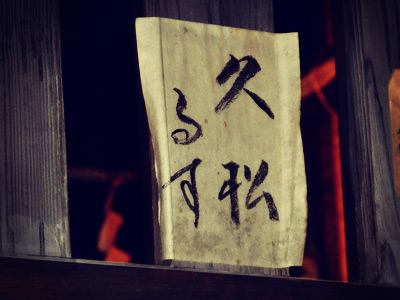 久松
るす